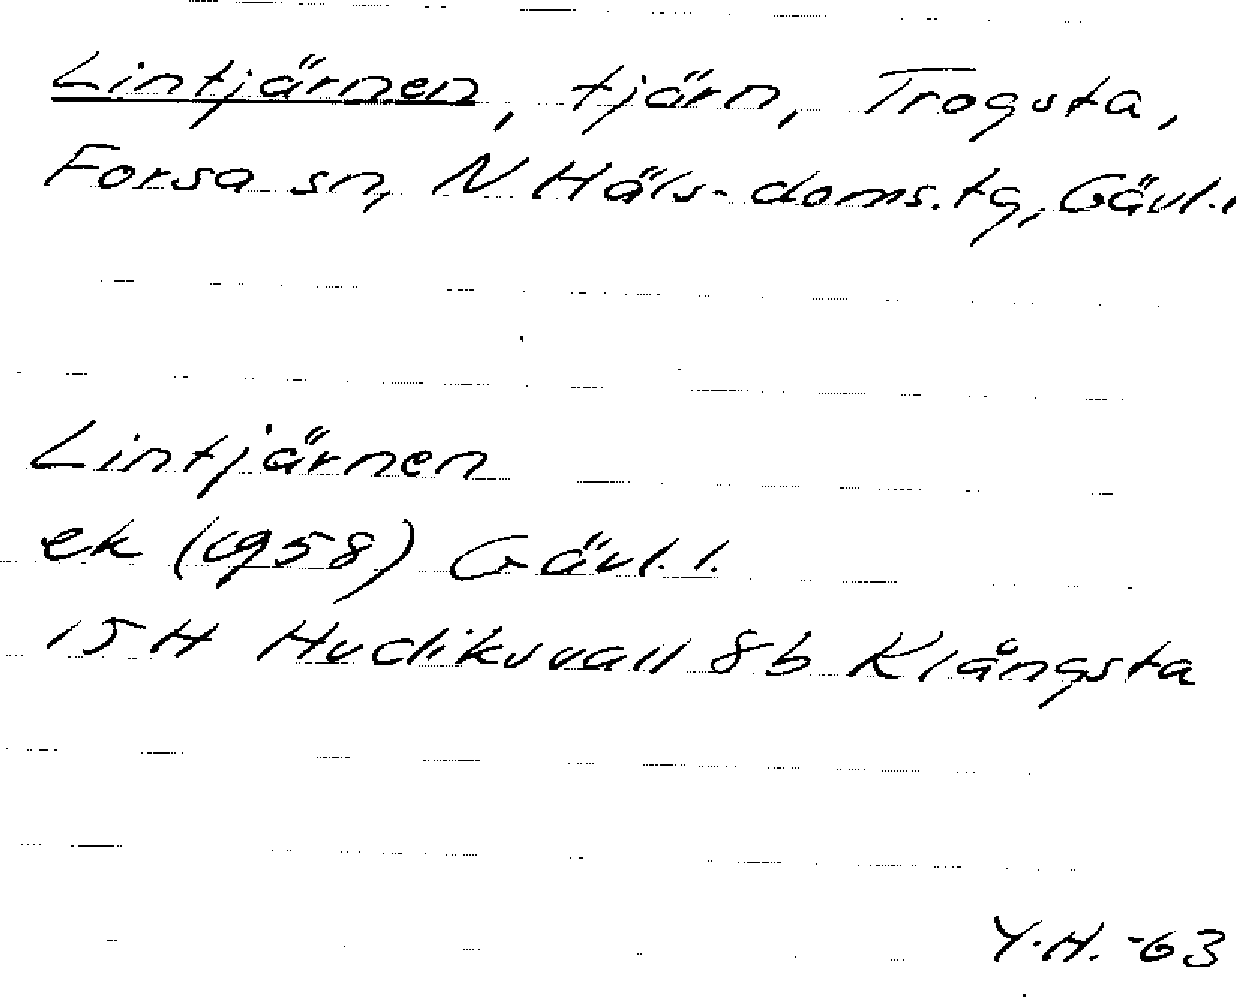 Lintjärnen, tjärn, Trogsta,
Forsa sn, N. Häls. doms.tg, Gävl.l
Lintjärnen
ek (1958) Gävl. l.
15 H Hudiksvall 8b Klångsta
Y.H. -63